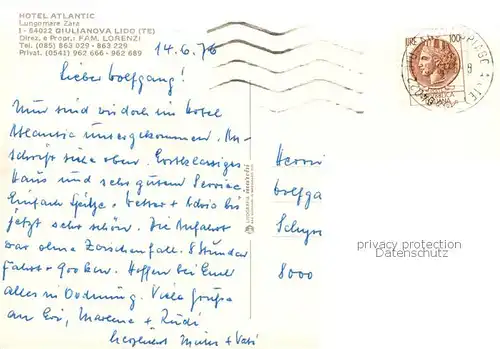 HOTEL ATLANTIC
Lungomare Zara
I - 64022 GIULIANOVA LIDO (TE)
Direz. e Propr.: FAM. LORENZI
Tel. (085) 863 029 - 863 229
Privat. (0541) 962 666 - 962 689
14.6.76
LIRE 100
Lieber Wolfgang!
Nun sind wir doch im Hotel
Atlantic untergekommen. An-
schrift siehe oben. Erstklassiges
Haus und sehr guten Service.
Einfach Spitze. Wetter + Adria bis
jetzt sehr schön. Die Anfahrt
war ohne Zwischenfall. 8 Stunden
Fahrt. Hoffen bei Euch
alles in Ordnung. Viele Grüße
an Evi, + Rudi
herzlichst Mutti + Vati
Herrn
Wolfga
8000
privacy protection
Datenschutz